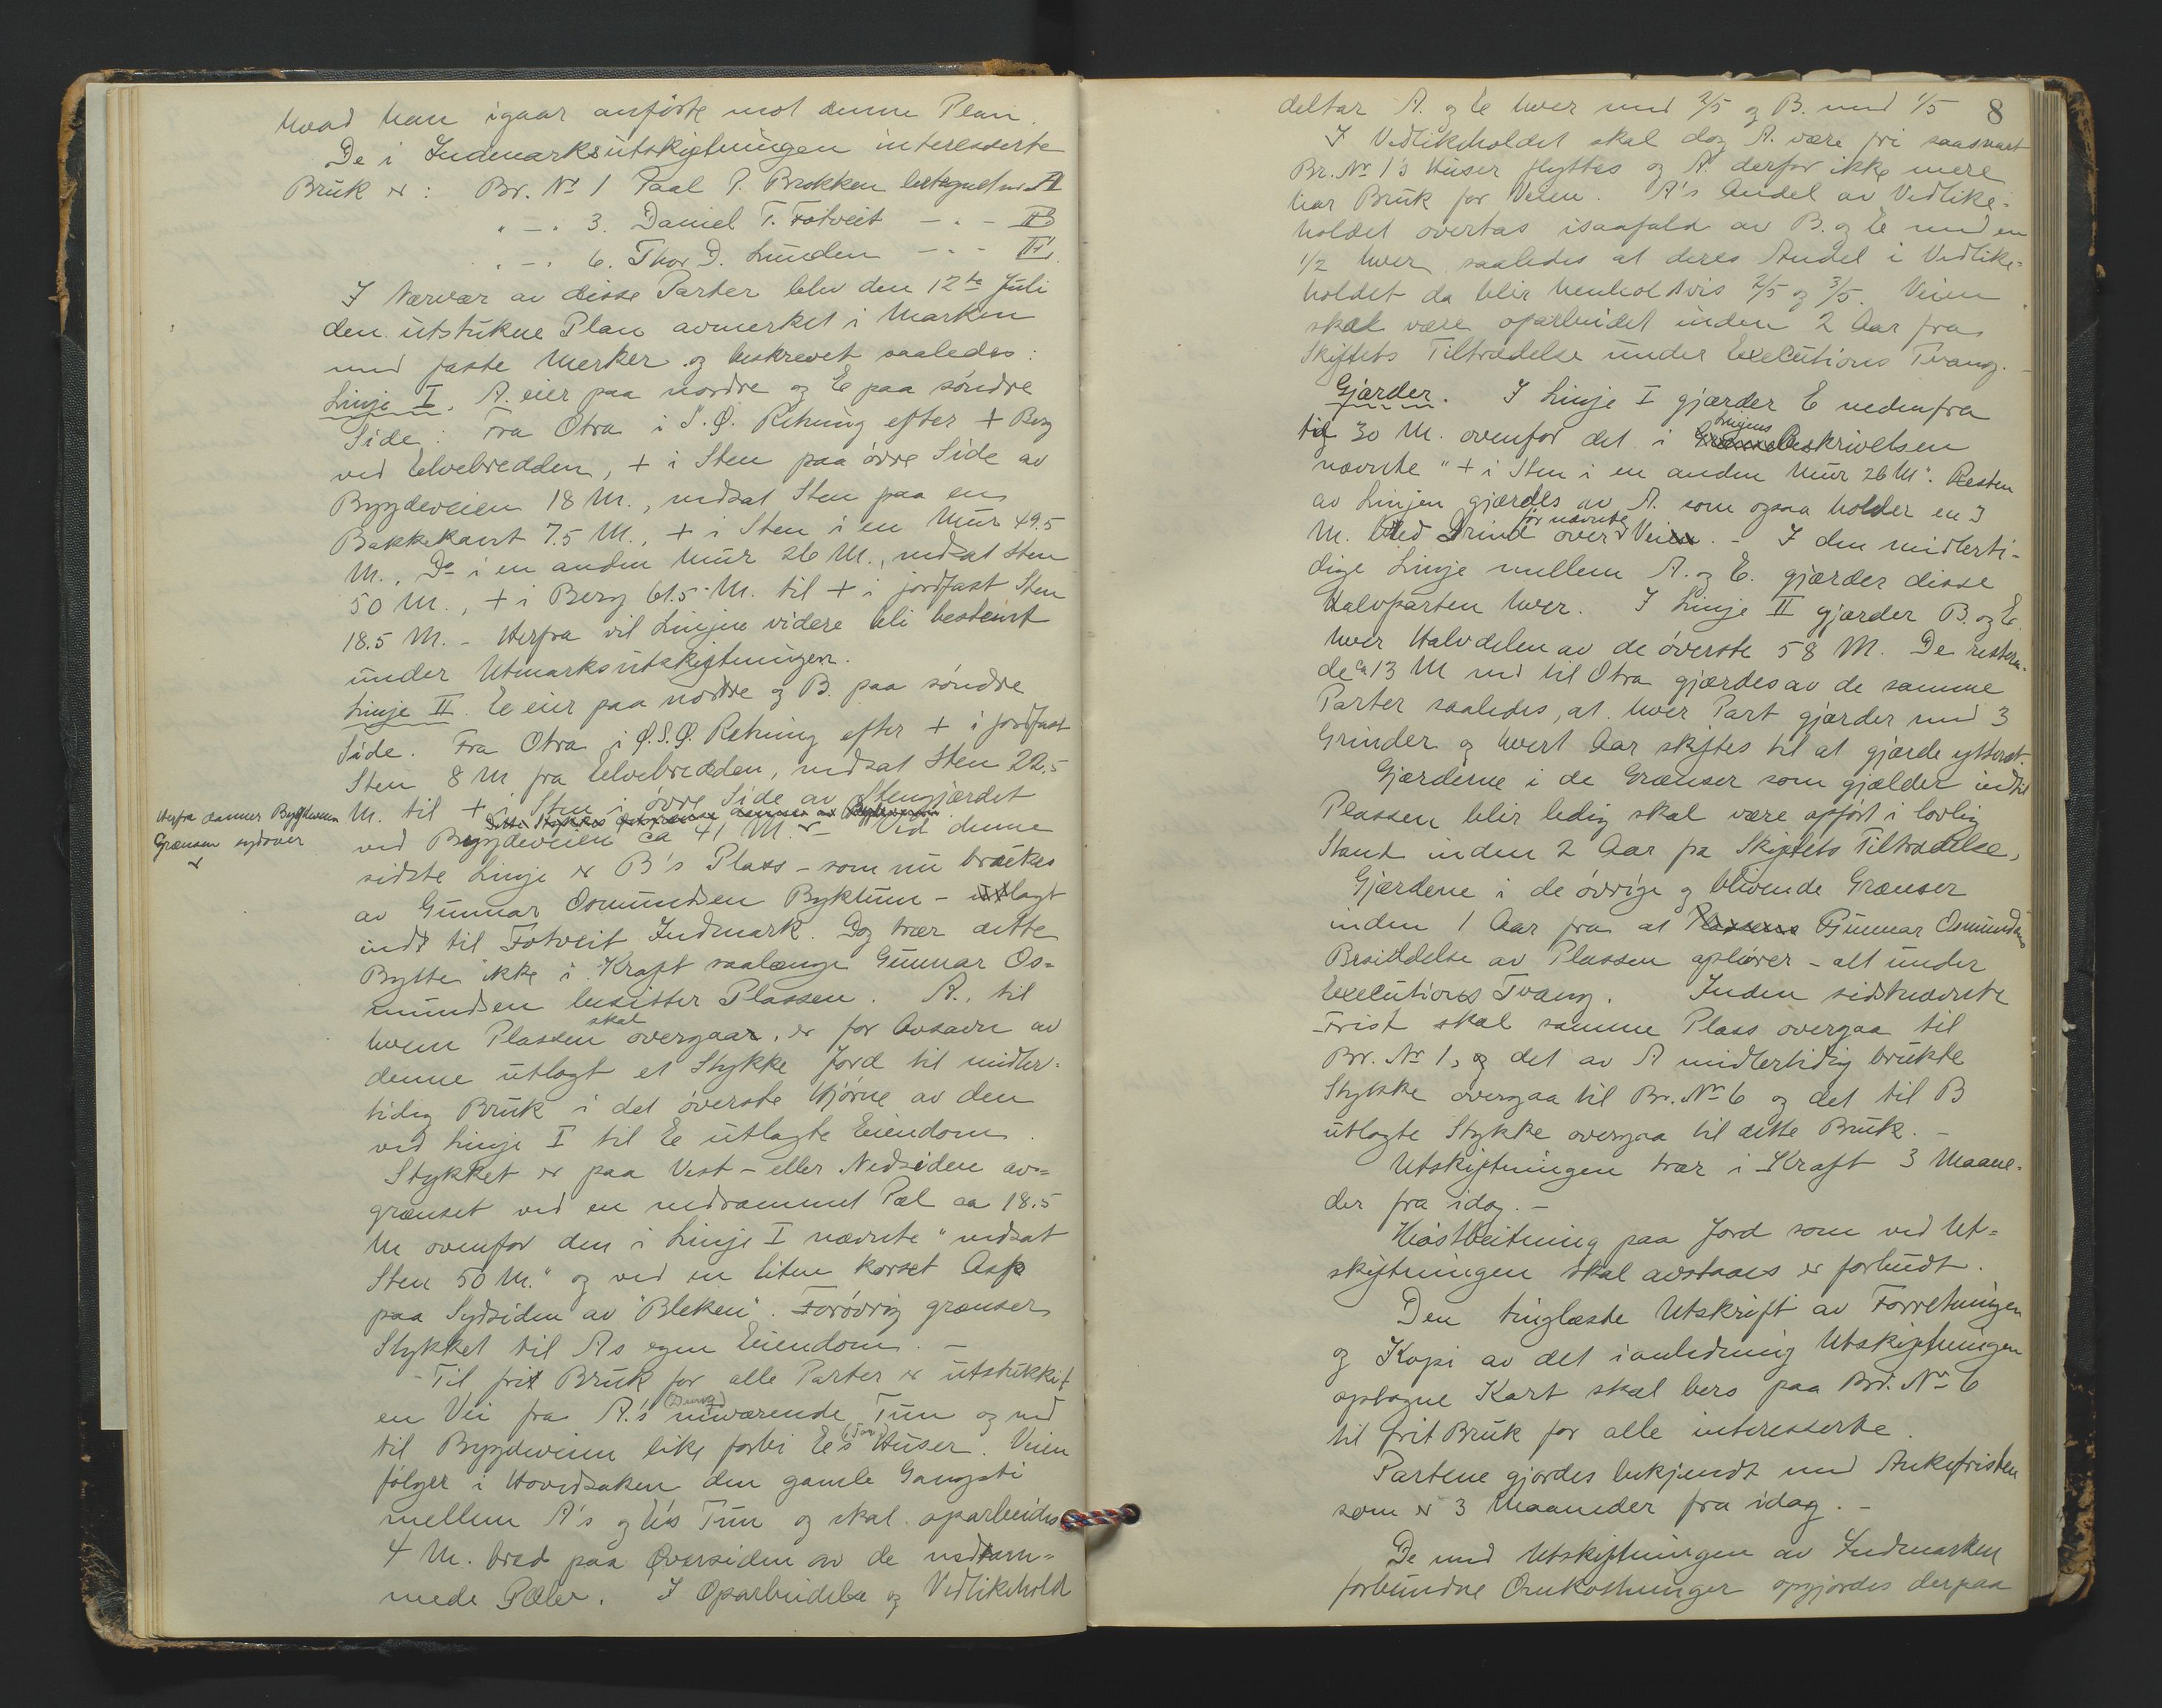 hvad han igaar anførte mot denne Plan.
De i Indmarksutskiftningen interesserte
Bruk er: Br. No 1 Paal P. Brokken betegnet m. A
" - " 3. Daniel T. Fotveit - " - B
" - " 6. Thor D. Lunden - " - E
I Nærvær av disse Parter blev den 12te Juli
den utstukne Plan avmerket i Marken
med faste Merker og beskrevet saaledes:
Linje I. A. eier paa nordre og E paa søndre
Side: Fra Otra i S.Ø. Retning efter + Berg
ved Elvebredden, + i Sten paa øvre Side av
Bygdeveien 18 M., nedsat Sten paa en
Bakkekant 7.5 M., + i Sten i en Mur 49.5
M., Do i en anden Mur 26 M., nedsat Sten
50 M., + i Berg 61.5 M. til + i jordfast Sten
18.5 M. - Herfra vil Linjen videre bli bestemt
under Utmarksutskiftningen.
Linje II. E eier paa nordre og B. paa søndre
Side. Fra Otra i Ø.S.Ø. Retning efter + i jordfast
Sten 8 M fra Elvebredden, nedsat Sten 22.5
M. til + i Sten i øvre Side av Stengjærdet
Herfra danner Bygdeveien
Grænsen sydover
ved Bygdeveien ca 41 M. - Ved denne
sidste Linje er B's Plass - som nu brukes
av Gunnar Osmundsen Byklum - utlagt
indt til Fotveit Indmark. Dog trær dette
Bytte ikke i Kraft saalænge Gunnar Os=
mundsen besitter Plassen. A., til
hvem Plassen skal overgaar, er for Avsavn av
denne utlagt et Stykke Jord til midler=
tidig Bruk i det øverste Hjørne av den
ved Linje I til E utlagte Eiendom.
Stykket er paa Vest- eller Nedsiden av=
grænset ved en nedrammet Pæl ca 18.5
M ovenfor den i Linje I nævnte "nedsat
Sten 50 M." og ved en liten korset Asp
paa Sydsiden av "Bleken". Forøvrig grænser
Stykket til As egen Eiendom. -
- Til frit Bruk for alle Parter er utstukket
en Vei fra A.'s nuværende Tun og ned
til Bygdeveien like forbi E's Huser. Veien
følger i Hovedsaken den gamle Gangsti
mellem A's og E's Tun og skal oparbeides
4 M. bred paa Øversiden av de nedram=
mede Pæler. I Oparbeidelse og Vedlikehold
8
deltar A. og E hver med 2/5 og B. med 1/5
I Vedlikeholdet skal dog A. være fri saasnart
Br. No 1's Huser flyttes og A derfor ikke mere
har Bruk for Veien. A's Andel av Vedlike=
holdet overtas isaafald av B. og E med en
1/2 hver saaledes at deres Andel i Vedlike=
holdet da blir henholdsvis 2/5 og 3/5. Veien
skal være oparbeidet inden 2 Aar fra
Skiftets Tiltrædelse under Exekutions Tvang. -
Gjærder. I Linje I gjærder E nedenfra
til 30 M. ovenfor det i Linjens Beskrivelsen
nævnte "+ i Sten i en anden Mur 26 M". Resten
av Linjen gjærdes av A. som ogsaa holder en 3
M. bred Grind over nævnte Vei. - I den midlerti-
dige Linje mellem A. og E. gjærder disse
Halvparten hver. I Linje II gjærder B. og E.
hver Halvdelen av de øverste 58 M. De resteren-
de ca 13 M ned til Otra gjærdes av de samme
Parter saaledes, at hver Part gjærder med 3
Grinder og hvert Aar skiftes til at gjærde ytterst.
Gjærderne i de Grænser som gjælder indtil
Plassen blir ledig skal være opført i lovlig
Stand inden 2 Aar fra Skiftets Tiltrædelse,
Gjærdene i de øvrige og blivende Grænser
inden 1 Aar fra at Gunnar Osmundsens
Besiddelse av Plassen ophører - alt under
Exekutions Tvang. Inden sidstnævnte
Frist skal samme Plass overgaa til
Br. No 1, og det av A midlertidig brukte
Stykke overgaa til Br. No 6 og det til B
utlagte Stykke overgaa til dette Bruk. -
Utskiftningen trær i Kraft 3 Maane-
der fra idag. -
Høstbeitning paa Jord som ved Ut=
skiftningen skal avstaaes er forbudt.
Den tinglæste Utskrift av Forretningen
og Kopi av det i anledning Utskiftningen
optagne Kart skal bero paa Br. No 6
til frit Bruk for alle interesserte.
Partene gjordes bekjendt med Ankefristen
som er 3 Maaneder fra idag. -
De med Utskiftningen av Indmarken
forbundne Omkostninger opgjordes derpaa